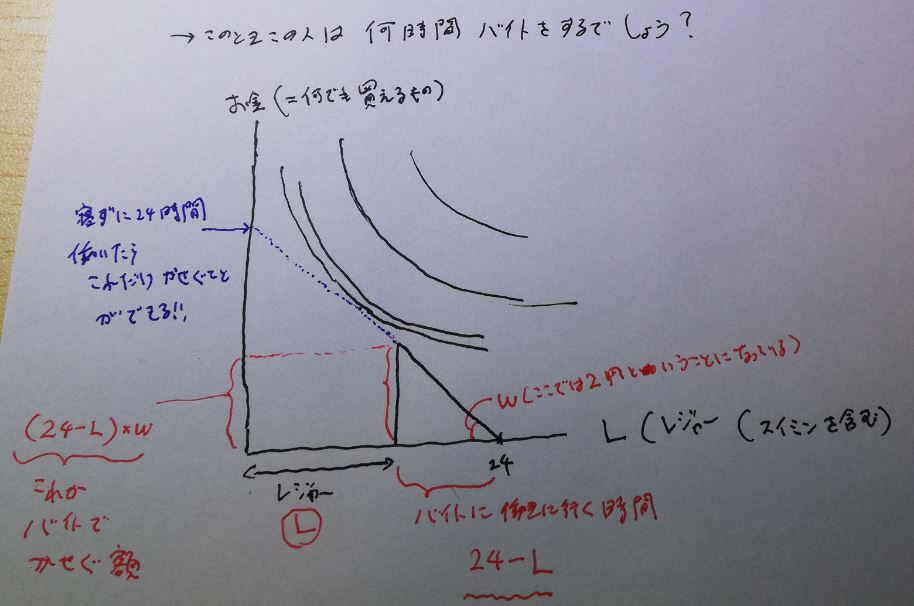 →このときこの人は 何時間 バイトをするでしょう?
お金 (=何でも買えるもの)
寝ずに24時間
働いたら
これだけ かせぐこと
ができる!!
w (ここでは2円ということになっている)
(24-L)×w
L (レジャー (スイミンを含む)
24
レジャー
L
これが
バイトで
かせぐ額
バイトに働きに行く時間
24-L